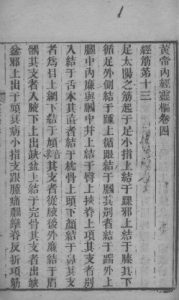 黃帝內經靈樞卷四
經筋第十三
足太陽之筋起于足小指上結于踝邪上結于膝其下
循足外側結于踵上循跟結于膕其別者結于腨外上
膕中內廉與膕中并上結于臀上挾脊上項其支者別
入結于舌本其直者結于枕骨上頭下顏結于鼻其支
者爲目上網下結于頄其支者從腋後外廉結于肩
髃其支者入腋下上出缺盆上結于完骨其支者出缺
盆邪上出于頄其病小指支跟腫痛膕攣脊反折項筋